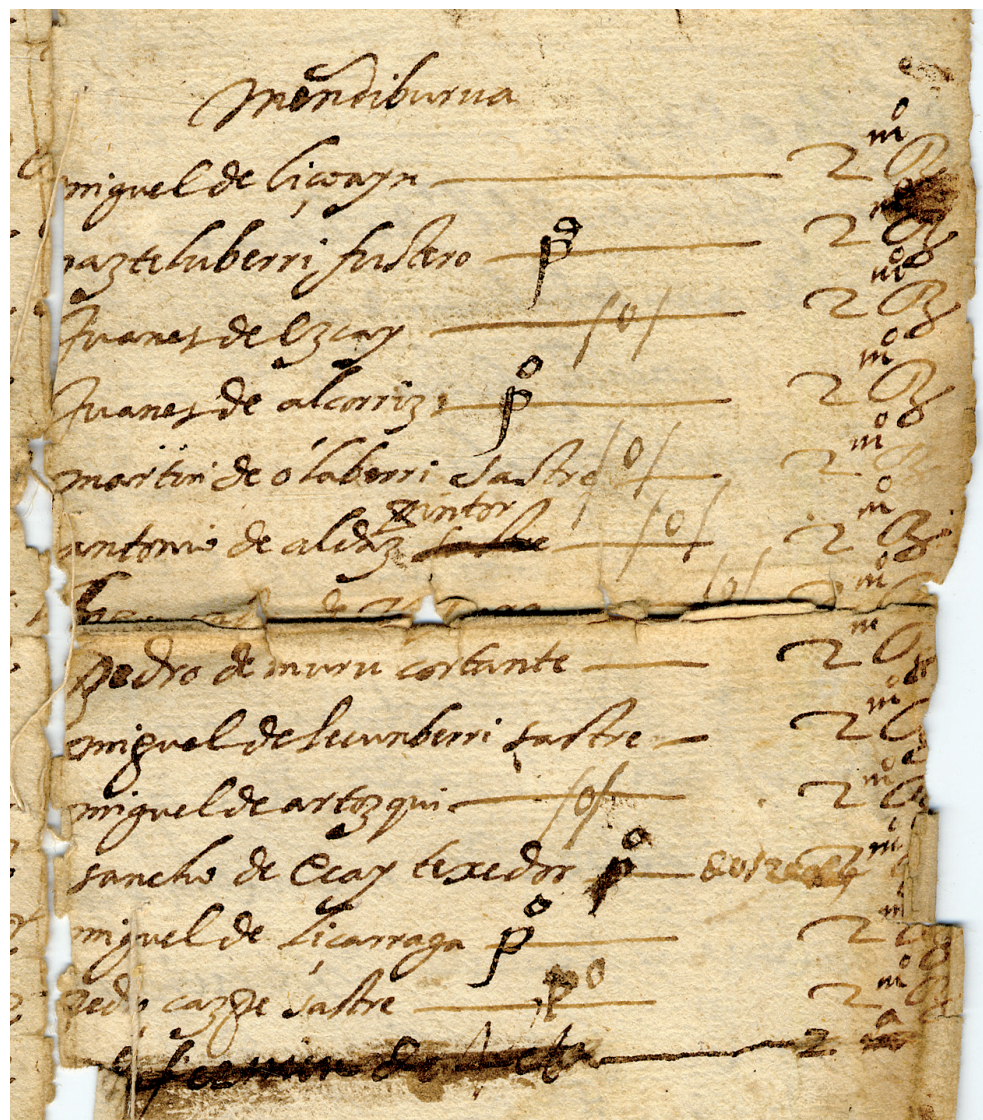 mendiburua
miguel de liçoayn 2 Rs
gazteluberri fustero po 2 Rs
Juanes de ezcay /o/ 2 Rs
Juanes de alcorriz po 2 Rs
martin de olaberri sastre /o/ 2 Rs
pintor
antonio de aldaz sastre /o/ 2 Rs
/o/ 2
pedro de muru cortante 2 Rs
miguel de lecunberri sastre 2
miguel de artozqui /o/ 2 Rs
sancho de Ecay texedor po
miguel de liçarraga po 2 Rs
pedro cazpe sastre po 2 Rs
2